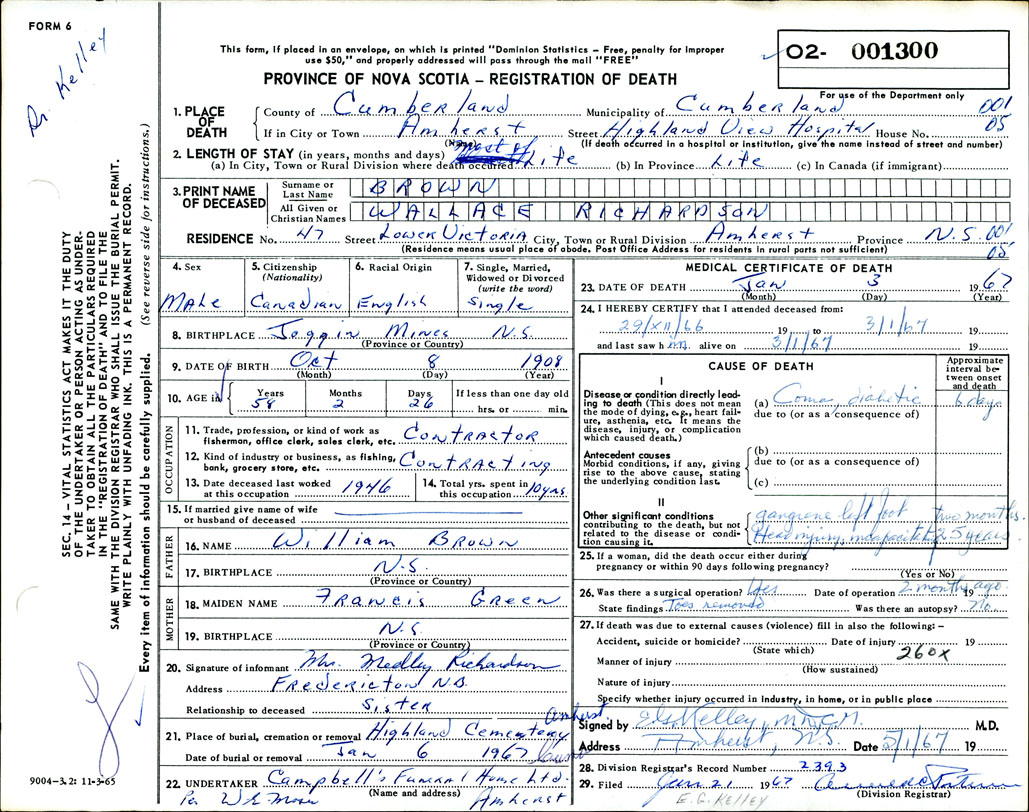 FORM 6
Dr. Kelley
This form, if placed in an envelope, on which is printed "Dominion Statistics – Free, penalty for improper
use $50," and properly addressed will pass through the mail "FREE"
PROVINCE OF NOVA SCOTIA – REGISTRATION OF DEATH
02- 001300
For use of the Department only
SEC. 14 – VITAL STATISTICS ACT MAKES IT THE DUTY
OF THE UNDERTAKER OR PERSON ACTING AS UNDER-
TAKER TO OBTAIN ALL THE PARTICULARS REQUIRED
IN THE "REGISTRATION OF DEATH" AND TO FILE THE
SAME WITH THE DIVISION REGISTRAR WHO SHALL ISSUE THE BURIAL PERMIT.
WRITE PLAINLY WITH UNFADING INK. THIS IS A PERMANENT RECORD.
Every item of information should be carefully supplied. (See reverse side for instructions.)
1. PLACE OF DEATH County of Cumberland Municipality of Cumberland 001
If in City or Town Amherst Street Highland View Hospital House No. 05
(Name) (If death occurred in a hospital or institution, give the name instead of street and number)
2. LENGTH OF STAY (in years, months and days) most of
(a) In City, Town or Rural Division where death occurred Life (b) In Province Life (c) In Canada (if immigrant)
3. PRINT NAME OF DECEASED Surname or Last Name BROWN
All Given or Christian Names WALLACE RICHARDSON
RESIDENCE No. 47 Street Lower Victoria City, Town or Rural Division Amherst Province N.S. 001
(Residence means usual place of abode. Post Office Address for residents in rural parts not sufficient) 05
4. Sex Male
5. Citizenship (Nationality) Canadian
6. Racial Origin English
7. Single, Married, Widowed or Divorced (write the word) Single
8. BIRTHPLACE Joggin Mines N.S.
(Province or Country)
9. DATE OF BIRTH Oct 8 1908
(Month) (Day) (Year)
10. AGE in Years 58 Months 2 Days 26 If less than one day old hrs. or min.
OCCUPATION
11. Trade, profession, or kind of work as fisherman, office clerk, sales clerk, etc. Contractor
12. Kind of industry or business, as fishing, bank, grocery store, etc. Contracting
13. Date deceased last worked at this occupation 1946 14. Total yrs. spent in this occupation 10 yrs.
15. If married give name of wife or husband of deceased
FATHER
16. NAME William Brown
17. BIRTHPLACE N.S.
(Province or Country)
MOTHER
18. MAIDEN NAME Francis Green
19. BIRTHPLACE N.S.
(Province or Country)
20. Signature of informant Mrs. Medley Richardson
Address Fredericton N.B.
Relationship to deceased Sister
21. Place of burial, cremation or removal Highland Cementery Amherst
Date of burial or removal Jan 6 1967
22. UNDERTAKER Campbell's Funeral Home Ltd.
(Name and address) Amherst
Per
9004–3.2: 11-3-65
MEDICAL CERTIFICATE OF DEATH
23. DATE OF DEATH Jan 3 1967
(Month) (Day) (Year)
24. I HEREBY CERTIFY that I attended deceased from:
29/XII/66 19 to 3/1/67 19
and last saw him alive on 3/1/67 19
CAUSE OF DEATH
Approximate interval between onset and death
I
Disease or condition directly leading to death (This does not mean the mode of dying, e.g., heart failure, asthenia, etc. It means the disease, injury, or complication which caused death.)
(a) Coma, diabetic 6 days
due to (or as a consequence of)
Antecedent causes
Morbid conditions, if any, giving rise to the above cause, stating the underlying condition last.
(b)
due to (or as a consequence of)
(c)
II
Other significant conditions contributing to the death, but not related to the disease or condition causing it.
gangrene left foot two months.
Head injury, incapacitated 25 years.
25. If a woman, did the death occur either during
pregnancy or within 90 days following pregnancy?
(Yes or No)
26. Was there a surgical operation? Yes Date of operation 2 months ago 19
State findings Toes removed Was there an autopsy? No.
27. If death was due to external causes (violence) fill in also the following: –
Accident, suicide or homicide? Date of injury 19
(State which) 260X
Manner of injury
(How sustained)
Nature of injury
Specify whether injury occurred in industry, in home, or in public place
Signed by E.G. Kelley, M.D.C.M. M.D.
Address Amherst, N.S. Date 5/1/67 19
28. Division Registrar's Record Number 2393
29. Filed Jan 21 1967
(Division Registrar)
E.G. KELLEY